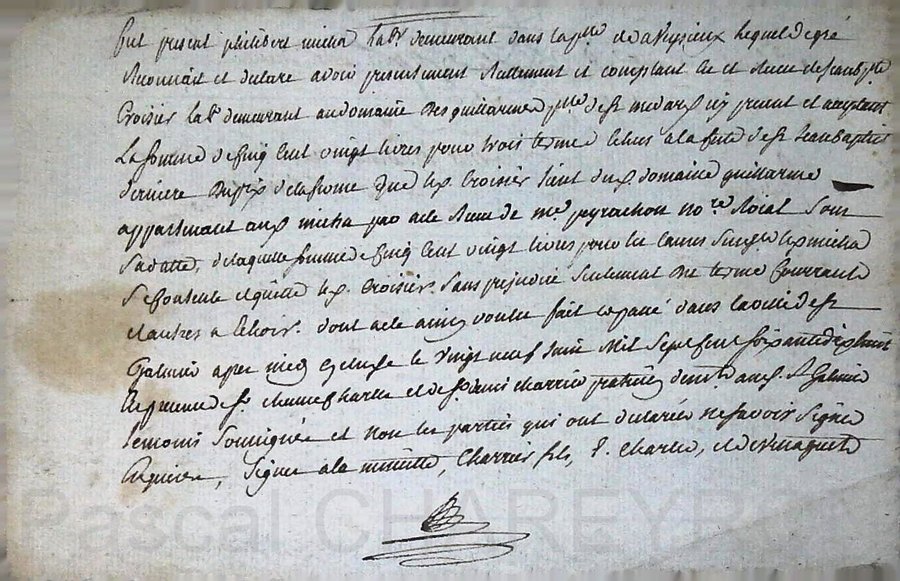 fut present philibert micha labr demeurant dans la psse de aveysieux lequel de gré
Reconnait et declare avoir presentement Reellement et comptant Eu et Receu de Jean bpte
Croisier labr demeurant au domaine des guillarme psse de st medard icy present et acceptant
La somme de Cinq Cent vingt livres pour trois terme Echus a la fete de st Jean Baptiste
derniere du prix de la ferme que le Croisier tient du domaine guillarme
appartenant aux micha par acte Receu de me peyrachon nore Roial Sous
Sa datte, de laquelle somme de Cinq Cent vingt livres pour les Causes le micha
Se Contente et quitte le Croisier Sans prejudice Seulement du terme Courrant
et autres a Echoir. dont acte ainsy voulu fait et passé dans la ville de st
Galmier apres midy le vingt neuf Juin Mil Sept Cent Soixante dix huit
En presence de charles et de charrier praticien demt aud. St Galmier
temoins Soussignés et non les parties qui ont declarés ne Savoir Signer
Enquis, Signé a la minutte, Charrier fils, Charles, et
Pascal CHAREYRON